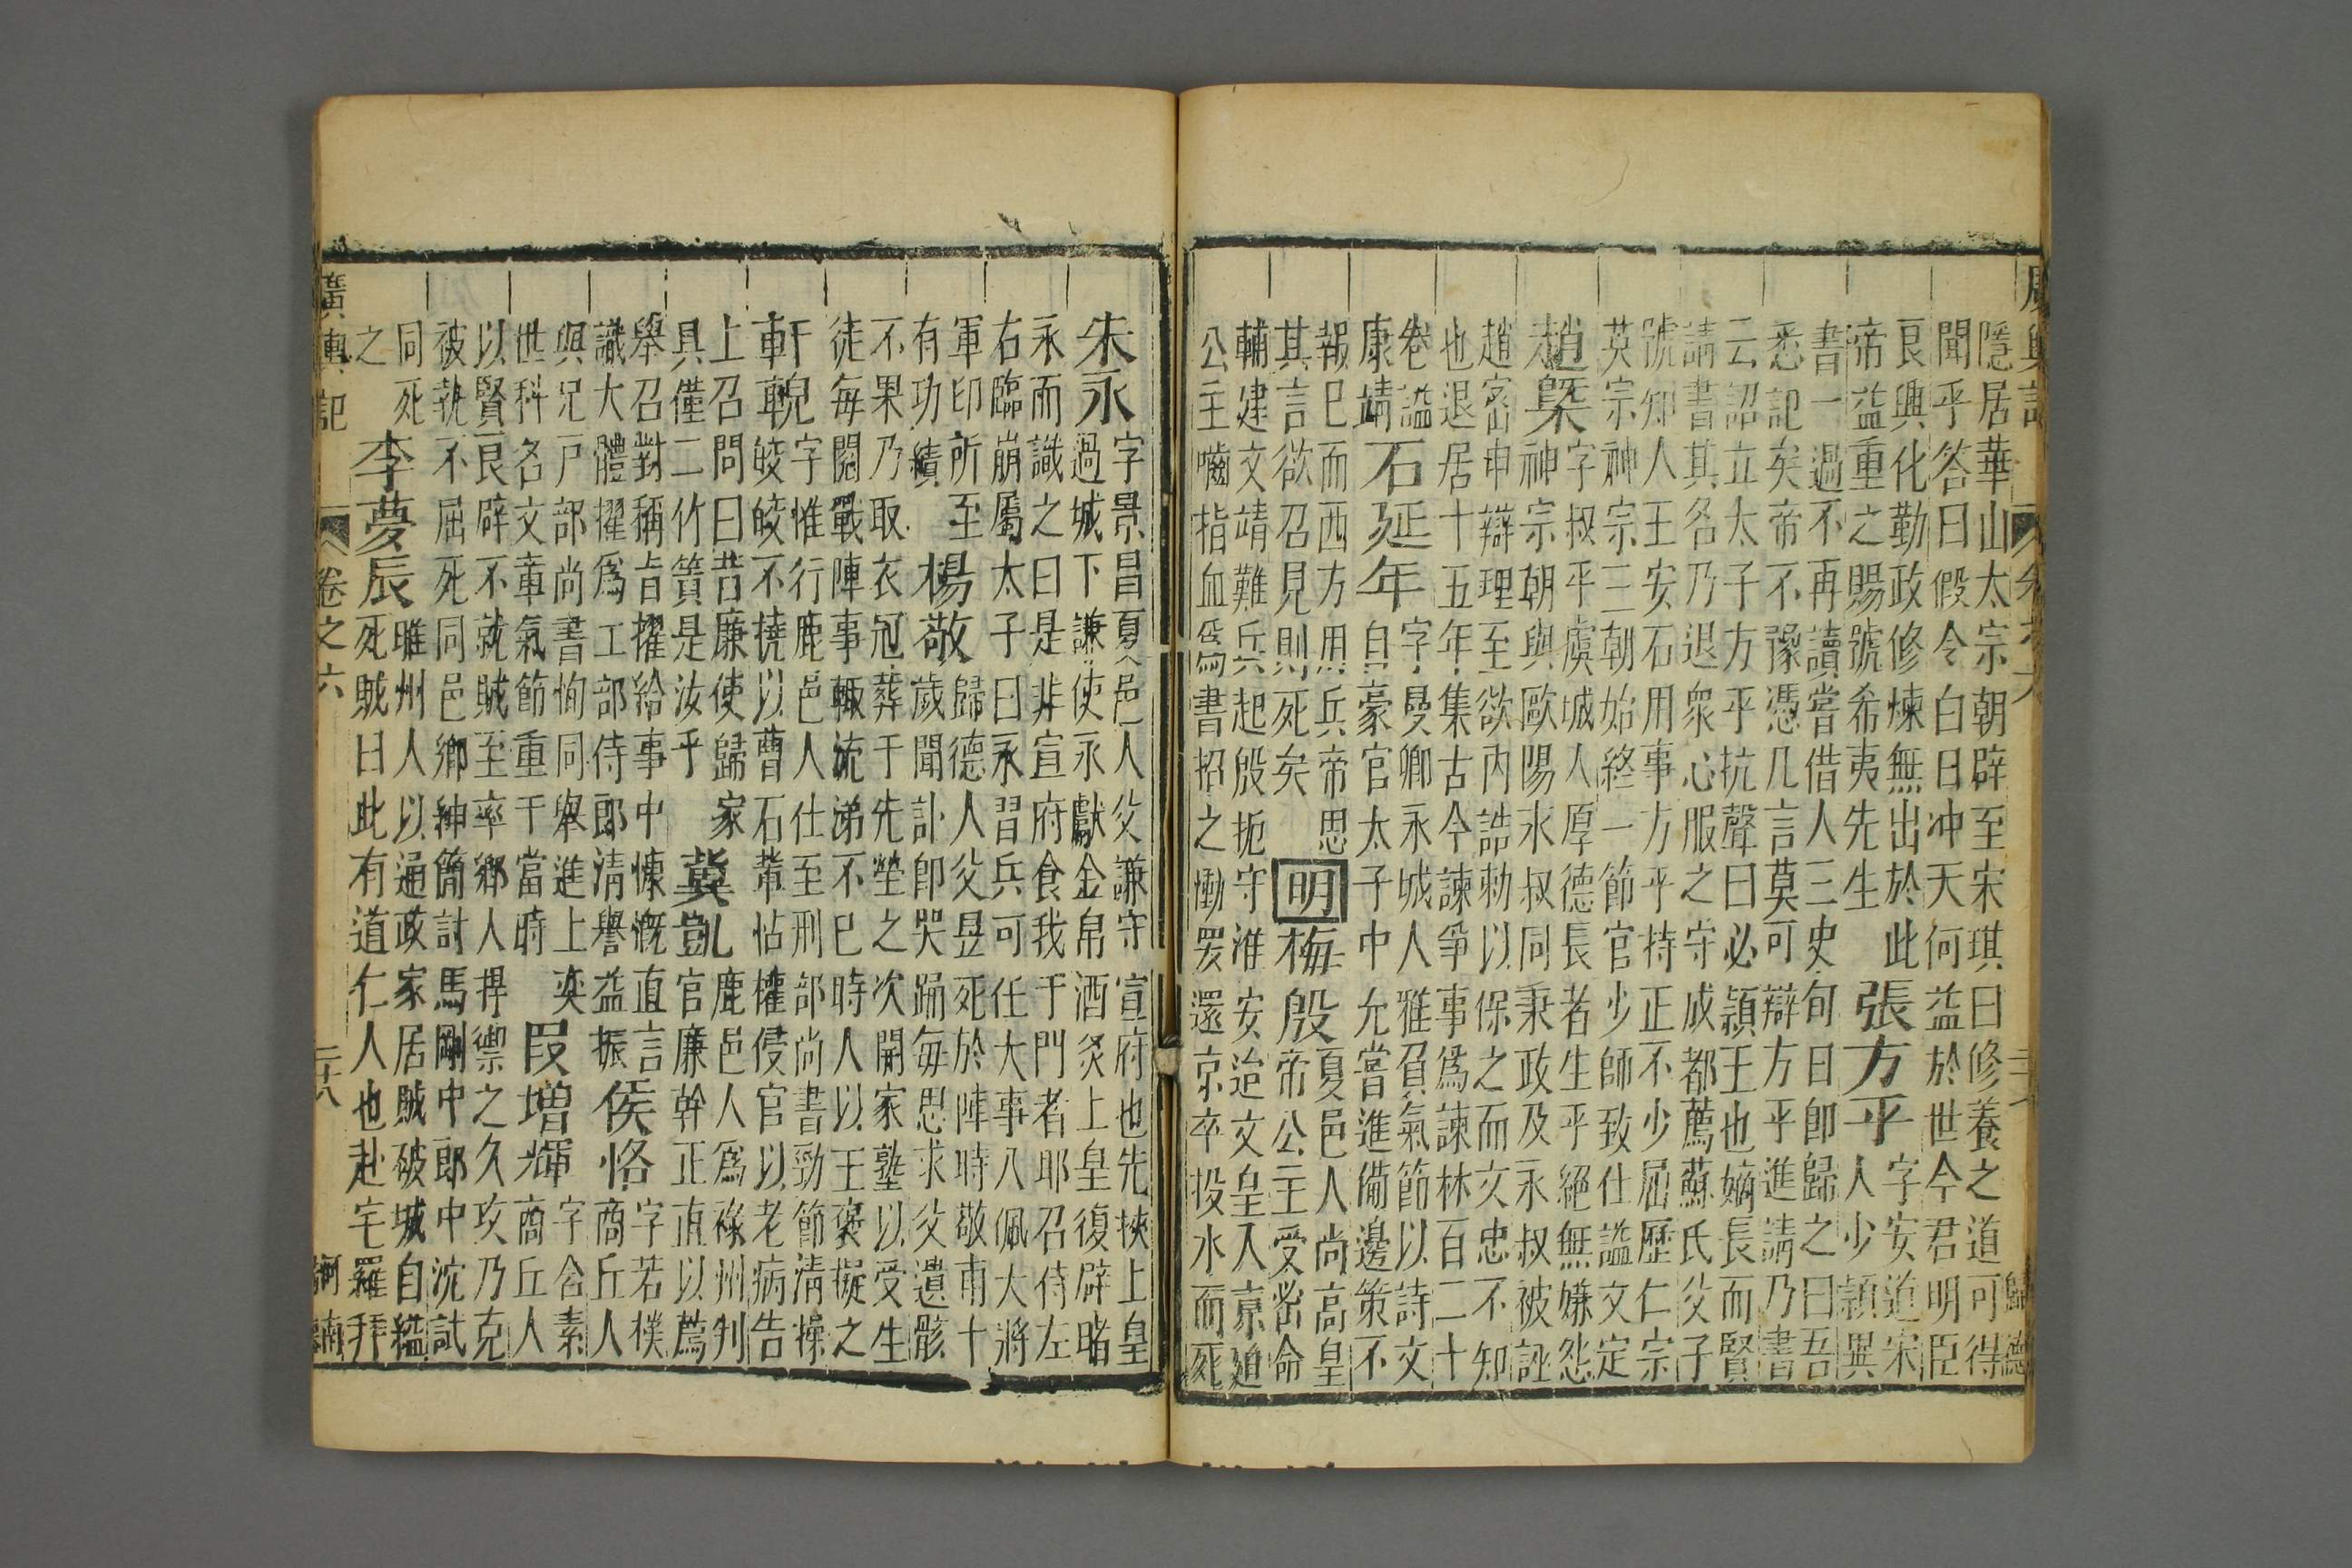 廣輿記 卷之六 歸德
隱居華山太宗朝辟至宋琪曰修養之道可得
聞乎答曰假令白日冲天何益於世今君明臣
良興化勤政修煉無出於此
帝益重之賜號希夷先生
張方平
字安道宋
人少穎異
書一過不再讀嘗借人三史旬日即歸之曰吾
悉記矣帝不豫憑几言莫可辯方平進請乃書
云詔立太子方平抗聲曰必頴王也嫡長而賢
請書其名乃退衆心服之守成都薦蘇氏父子
號知人王安石用事方平持正不少屈歷仁宗
英宗神宗三朝始終一節官少師致仕謚文定
趙槩
字叔平虞城人厚德長者生平絕無嫌怨
神宗朝與歐陽永叔同秉政及永叔被誣
趙密申辯理至欲內誥勅以保之而文忠不知
也退居十五年集古今諫爭事為諫林百二十
卷謚
康靖
石延年
字曼卿永城人雅負氣節以詩文
自豪官太子中允嘗進備邊策不
報已而西方用兵帝思
其言欲召見則死矣
明
梅殷
夏邑人尚高皇
帝公主受密命
輔建文靖難兵起殷扼守淮安迨文皇入京迫
公主嚙指血為書招之慟哭還京卒投水而死
朱永
字景昌夏邑人父謙守宣府也先挾上皇
過城下謙使永獻金帛酒炙上皇復辟睹
永而識之曰是非宣府食我于門者耶召侍左
右臨崩屬太子曰永習兵可任大事八佩大將
軍印所至
有功績
楊敬
歸德人父昱死於陣時敬甫十
歲聞訃即哭踊每思求父遺骸
不果乃取衣冠葬于先塋之次開家塾以受生
徒每閱戰陣事輒流涕不已時人以王裒擬之
軒輗
字惟行鹿邑人仕至刑部尚書勁節清操
皎皎不撓以曹石怙權侵官以老病告
上召問曰昔廉使歸家
具僅二竹簣是汝乎
冀凱
鹿邑人為祿州判
官廉幹正直以薦
舉召對稱旨擢給事中慷慨直言
識大體擢為工部侍郎清譽益振
侯恪
字若樸
商丘人
與兄戶部尚書恂同舉進上奕
世科名文章氣節重于當時
段增輝
字含素
商丘人
以賢良辟不就賊至率鄉人捍禦之久攻乃克
被執不屈死同邑鄉紳簡討馬剛中郎中沈試
同死
之
李夢辰
睢州人以通政家居賊破城自縊
死賊曰此有道仁人也赴宅羅拜
廣輿記 卷之六 二十八 河南